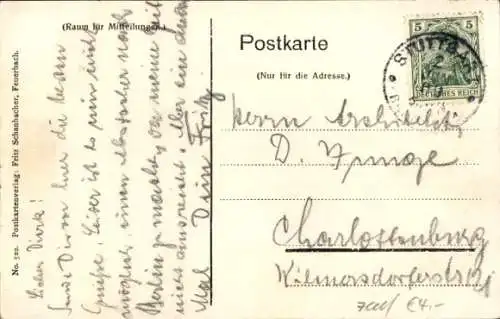 (Raum für Mitteilungen.)
Postkarte
(Nur für die Adresse.)
5 5
DEUTSCHES REICH
STUTTGART
No. 520. Postkartenverlag: Fritz Schanbacher, Feuerbach.
Lieber Dirk!
Sende Dir von hier die besten
Grüsse. Leider ist es mir nicht
möglich, einen Abstecher nach
Berlin zu machen, da meine Zeit
nicht ausreicht. Aber ein ander
Mal Dein Fritz
Herrn Architekt
D.
Charlottenburg
Wilmersdorferstr.
€4.-